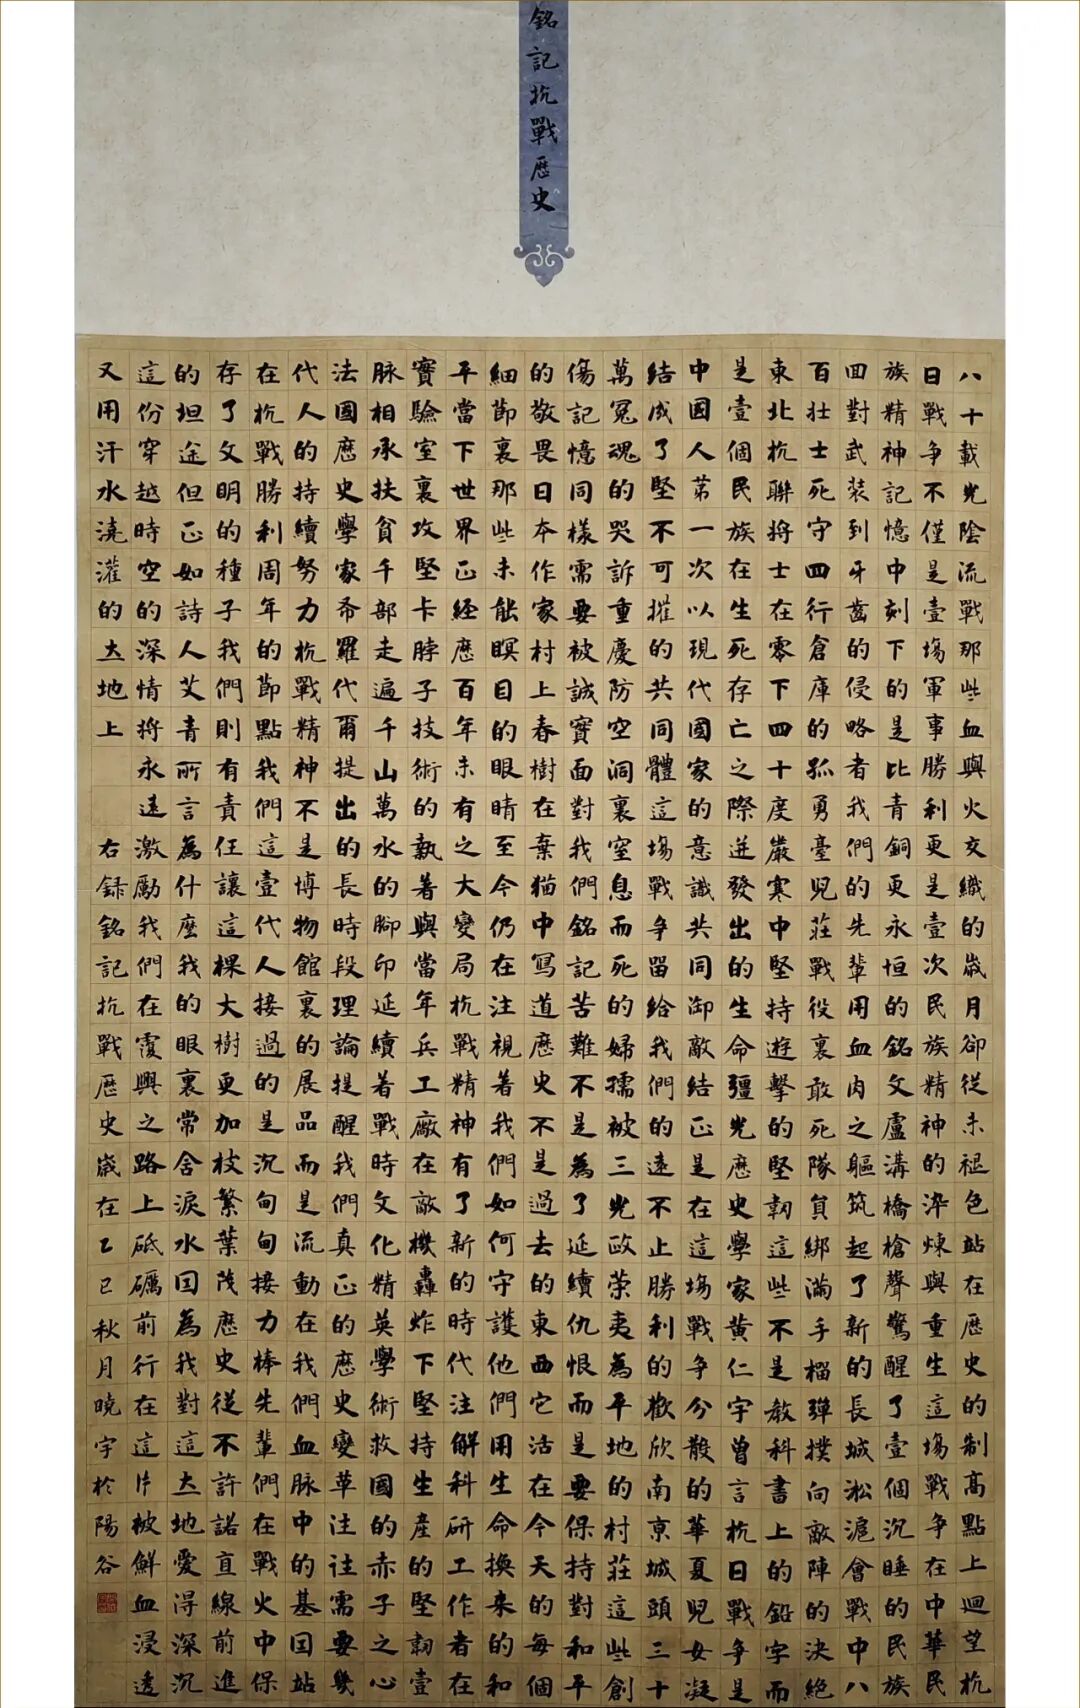 銘記抗戰歷史
八十載光陰流戰那些血與火交織的歲月卻從未褪色站在歷史的制高點上迴望抗
日戰争不僅是壹場軍事勝利更是壹次民族精神的淬煉與重生這場戰争在中華民
族精神記憶中刻下的是比青銅更永垣的銘文盧溝橋槍聲驚醒了壹個沉睡的民族
面對武装到牙齒的侵略者我們的先輩用血肉之軀筑起了新的長城淞滬會戰中八
百壮士死守四行倉庫的孤勇臺兒莊戰役裏敢死隊員綁滿手榴彈撲向敵陣的決絕
東北抗聯將士在零下四十度嚴寒中堅持遊擊的堅韌這些不是教科書上的鉛字而
是壹個民族在生死存亡之際迸發出的生命彊光歷史學家黄仁宇曾言抗日戰争是
中國人第一次以現代國家的意識共同御敵結正是在這場戰争分散的華夏兒女凝
結成了堅不可摧的共同體這場戰争留給我們的遠不止勝利的歡欣南京城頭三十
萬冤魂的哭訴重慶防空洞裏窒息而死的婦孺被三光政荣夷為平地的村莊這些創
傷記憶同樣需要被誠實面對我們銘記苦難不是為了延續仇恨而是要保持對和平
的敬畏日本作家村上春樹在棄猫中寫道歷史不是過去的東西它活在今天的每個
細節裏那些未能瞑目的眼睛至今仍在注視着我們如何守護他們用生命換来的和
平當下世界正經歷百年未有之大變局抗戰精神有了新的時代注解科研工作者在
實驗室裏攻堅卡脖子技術的執著與當年兵工廠在敵機轟炸下堅持生産的堅韌壹
脉相承扶貧干部走遍千山萬水的脚印延續着戰時文化精英學術救國的赤子之心
法國歷史學家布羅代爾提出的長時段理論提醒我們真正的歷史變革往往需要幾
代人的持續努力抗戰精神不是博物館裏的展品而是流動在我們血脉中的基因站
在抗戰勝利周年的節點我們這壹代人接過的是沉甸甸接力棒先輩們在戰火中保
存了文明的種子我們則有責任讓這棵大樹更加枝繁葉茂歷史從不許諾直線前進
的坦途但正如詩人艾青所言為什麼我的眼裏常含淚水因為我對這土地愛得深沉
這份穿越時空的深情將永遠激勵我們在復興之路上砥礪前行在這片被鮮血浸透
又用汗水澆灌的大地上 右録銘記抗戰歷史歲在乙巳秋月曉宇於陽谷